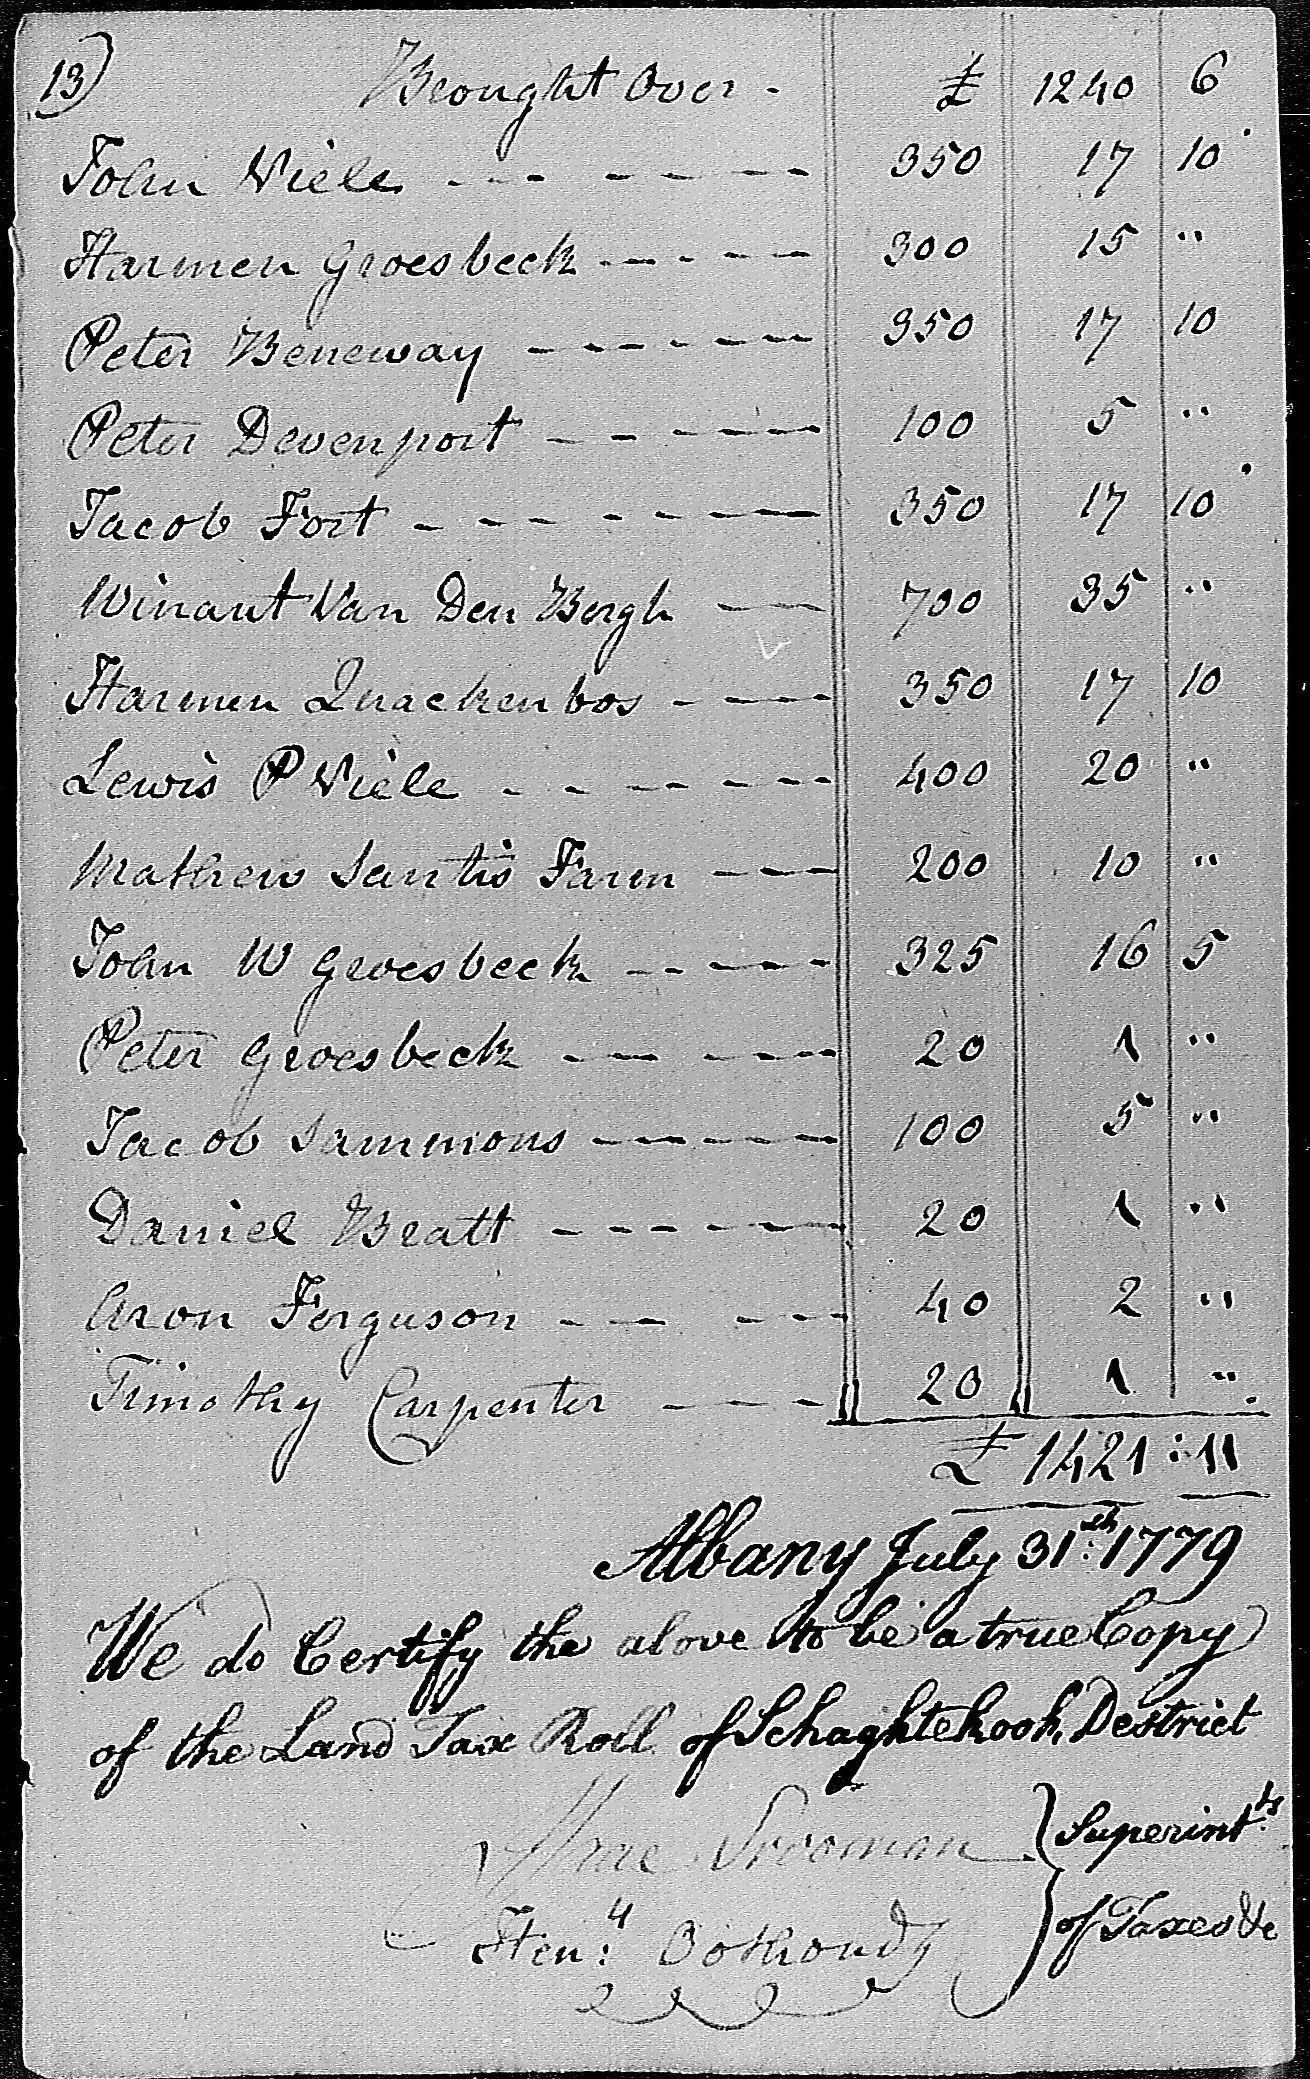 13) Brought Over - £ 1240 6
John Viele - - - - - - 350 17 10
Harmen Groesbeck - - - - - 300 15 "
Peter Beneway - - - - - - 350 17 10
Peter Devenport - - - - - 100 5 "
Jacob Fort - - - - - - - 350 17 10
Winant Van Den Bergh - - 700 35 "
Harmen Quackenbos - - - - 350 17 10
Lewis P Viele - - - - - - 400 20 "
Mathew Jantis Farm - - - 200 10 "
John W Groesbeck - - - - - 325 16 5
Peter Groesbeck - - - - - 20 1 "
Jacob Sammons - - - - - 100 5 "
Daniel Bratt - - - - - - 20 1 "
Aron Ferguson - - - - - 40 2 "
Timothy Carpenter - - - - 20 1 "
£ 1421 : 11
Albany July 31th: 1779
We do Certify the above to be a true Copy
of the Land Tax Roll of Schaghtekook District
Isaac Vrooman } Superintts.
Heny: Oothoudt } of Taxes &c